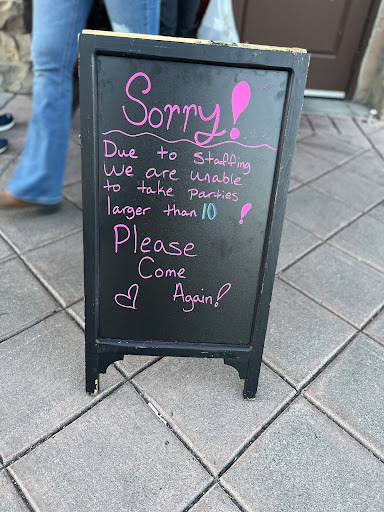 Sorry!
Due to staffing
We are unable
to take parties
larger than 10 !
Please
Come
Again!